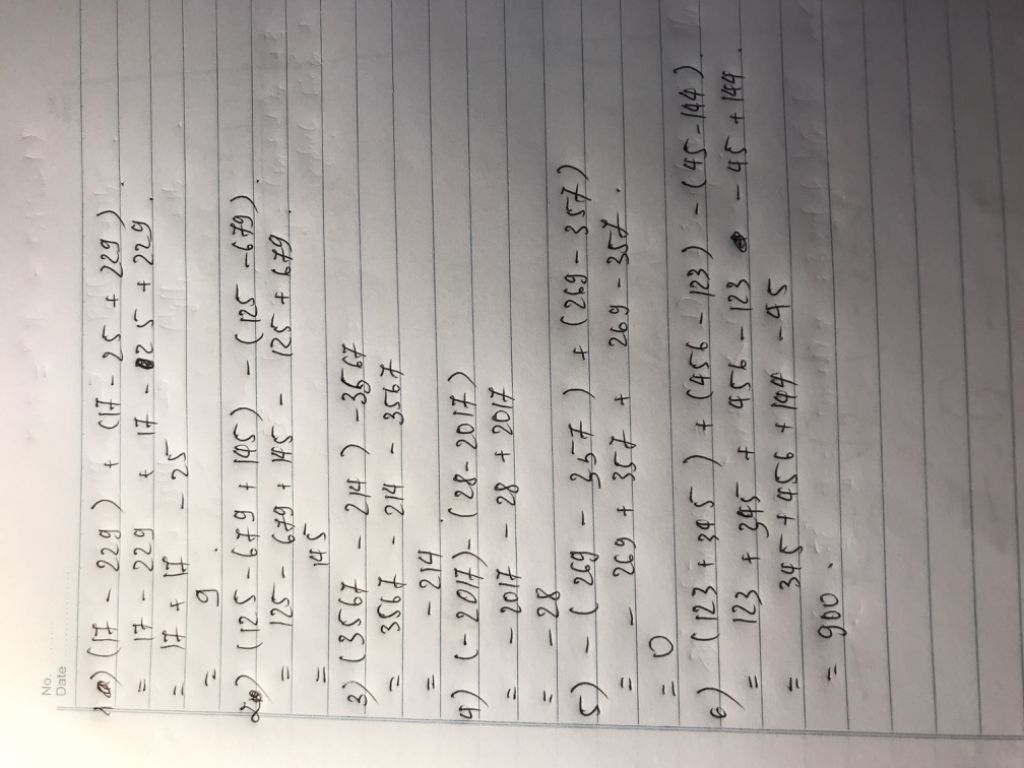 No.
Date
1) (17 - 229) + (17 - 25 + 229).
= 17 - 229 + 17 - 25 + 229.
= 17 + 17 - 25
= 9
2) (125 - 679 + 145) - (125 - 679).
= 125 - 679 + 145 - 125 + 679.
= 145
3) (3567 - 214) - 3567
= 3567 - 214 - 3567
= - 214
4) (- 2017) - (28 - 2017)
= - 2017 - 28 + 2017
= - 28
5) - (269 - 357) + (269 - 357)
= - 269 + 357 + 269 - 357.
= 0
6) (123 + 345) + (456 - 123) - (45 - 144).
= 123 + 345 + 456 - 123 - 45 + 144.
= 345 + 456 + 144 - 45
= 900.